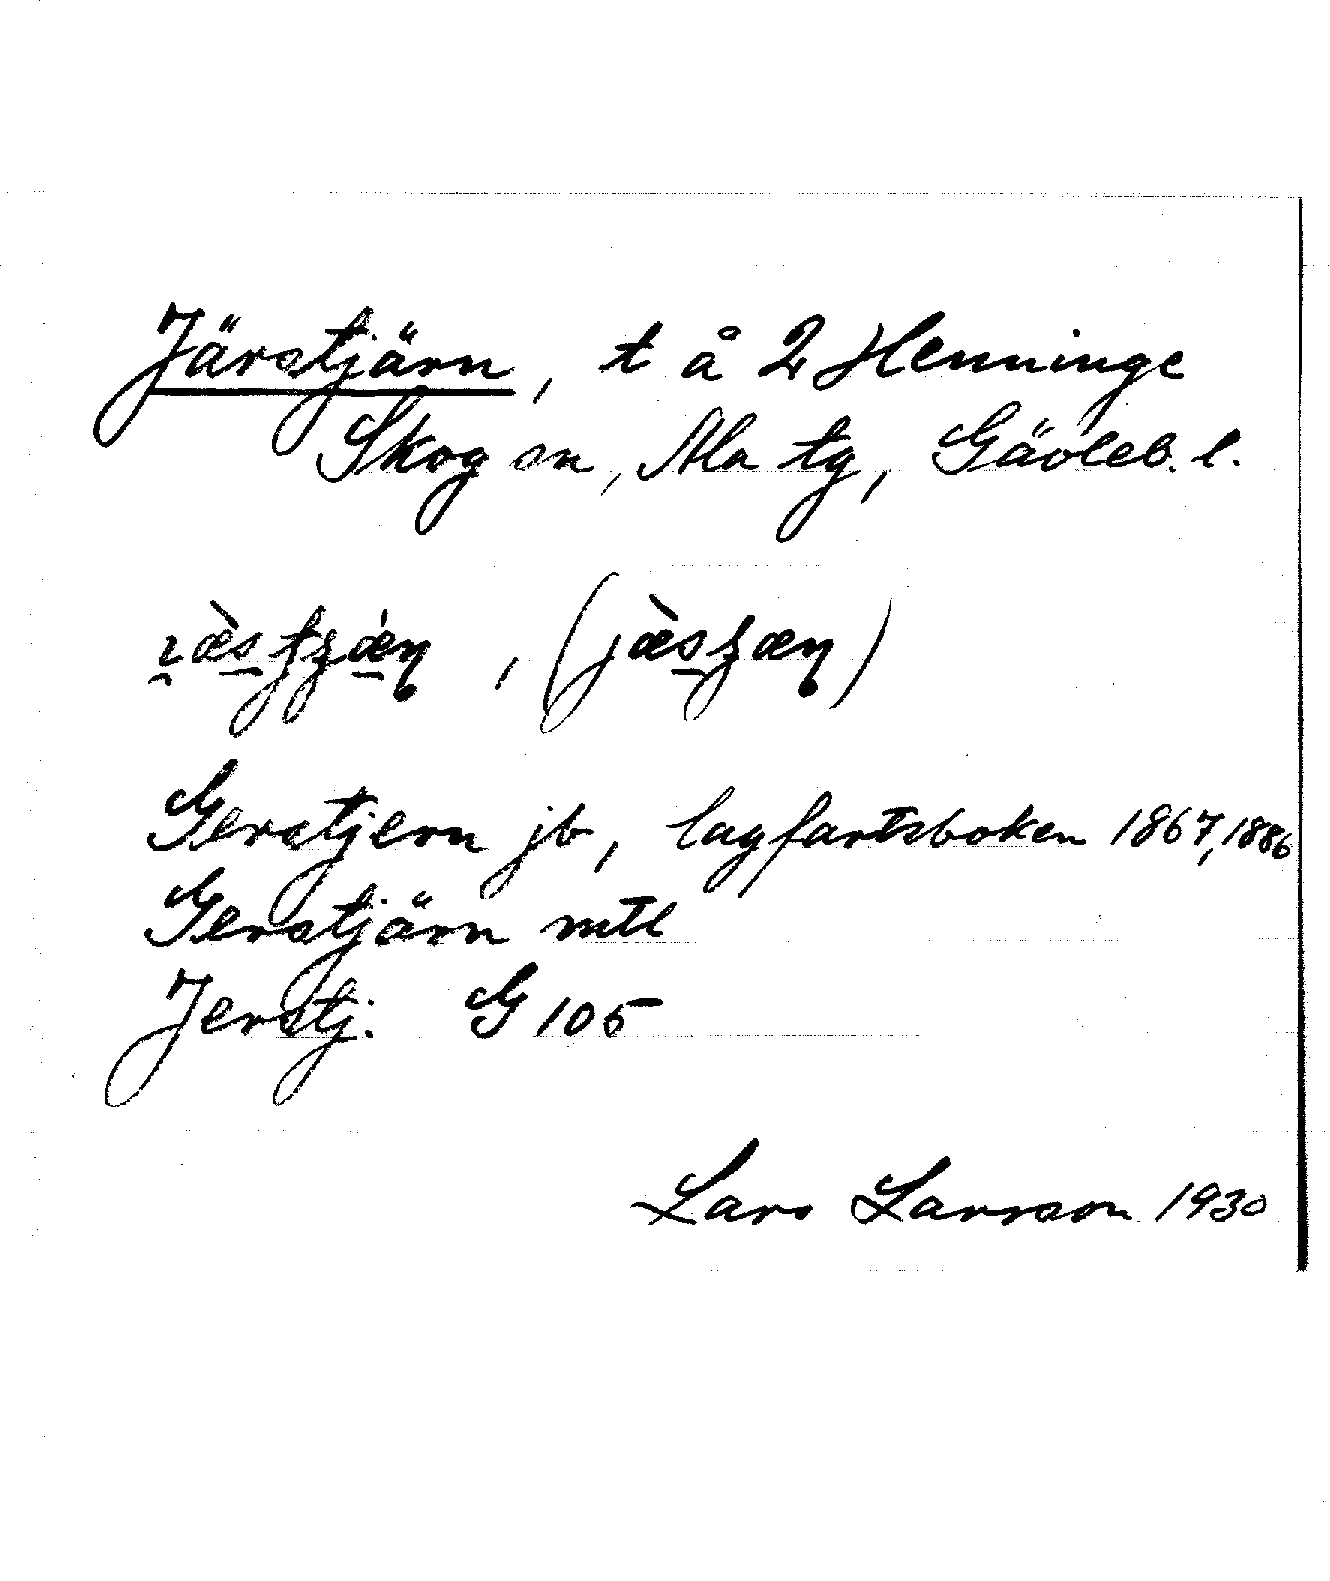 Järstjärn, t å 2 Henninge
Skog sn, Ala tg, Gävleb. l.
Gerstjern jb, lagfartsboken 1867, 1886
Gerstjärn mtl
Jerstj. G 105
Lars Larsson 1930